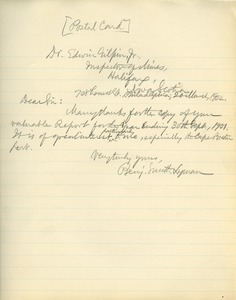 [Postal Card]
Dr. Edwin Gilpin Jr.
Inspector of Mines,
Halifax,
Nova Scotia
Dear Sir:
Many thanks for the copy of your
valuable Report for the year ending 30th Sept., 1901.
It is of great interest to me, especially the Cape Breton
part.
Very truly yours,
Benj. Smith Lyman